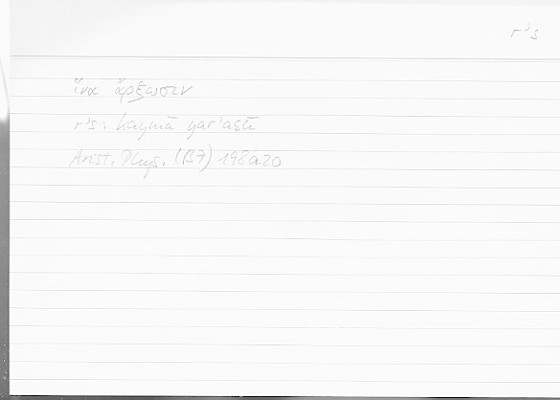 rʾs
ἵνα ἄρξωσιν
rʾs: kaymā yarʾasū
Arist. Phys. (B7) 198a20